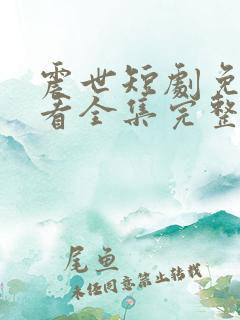 震世短劇免
看全集完整
尾鱼
未经同意禁止转载